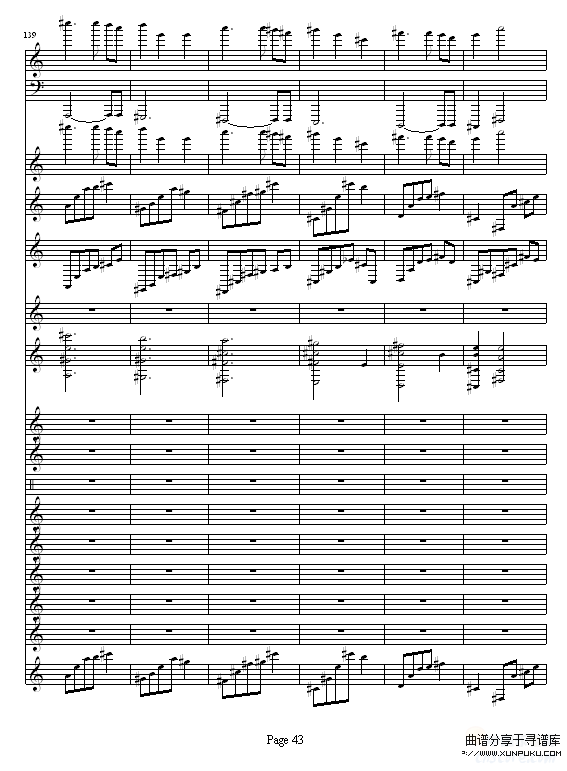 139
Page 43
曲谱分享于寻谱库
(WWW.XUNPUKU.COM)